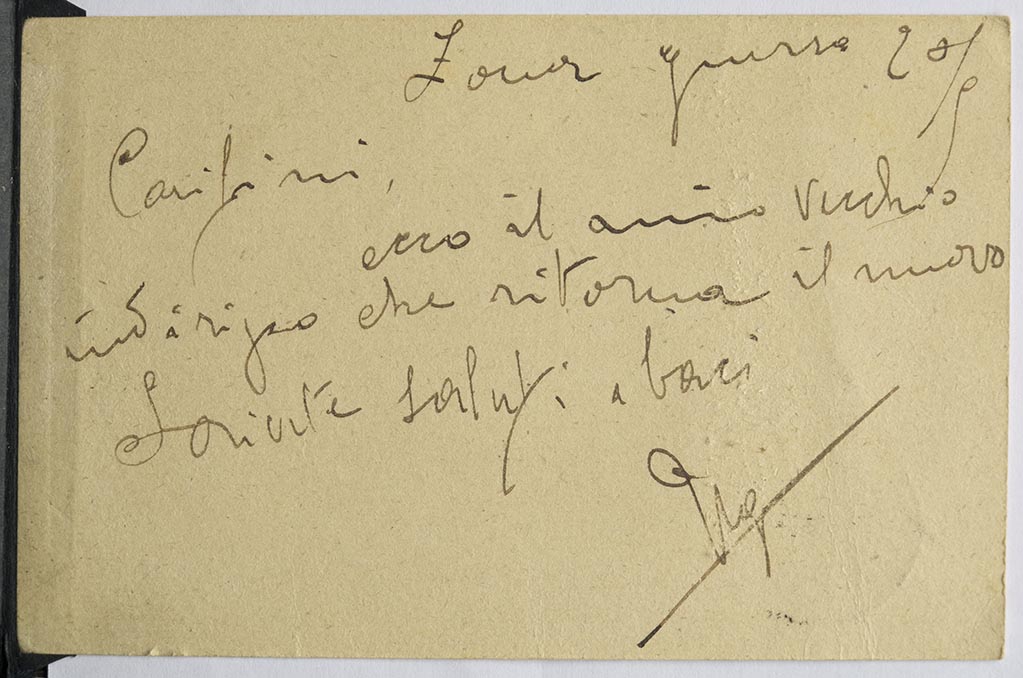 Zona guerra 28/9
Carissimi,
ecco il mio vecchio
indirizzo che ritorna il nuovo
Scrivete saluti e baci